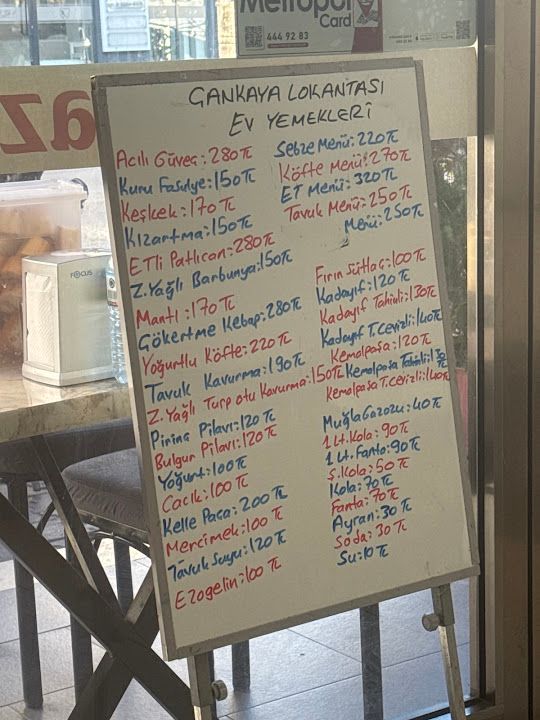 Metropol
Card
444 92 83
az
FOCUS
ÇANKAYA LOKANTASI
EV YEMEKLERİ
Acılı Güveç: 280 TL
Kuru Fasulye: 150 TL
Keşkek: 170 TL
Kızartma: 150 TL
ETli Patlıcan: 280 TL
Z. Yağlı Barbunya: 150 TL
Mantı: 170 TL
Gökertme Kebap: 280 TL
Yoğurtlu Köfte: 220 TL
Tavuk Kavurma: 190 TL
Z. Yağlı Turp otu Kavurma: 150 TL
Pirinç Pilavı: 120 TL
Bulgur Pilavı: 120 TL
Yoğurt: 100 TL
Cacık: 100 TL
Kelle Paça: 200 TL
Mercimek: 100 TL
Tavuk Suyu: 120 TL
Ezogelin: 100 TL
Sebze Menü: 220 TL
Köfte Menü: 270 TL
ET Menü: 320 TL
Tavuk Menü: 250 TL
Menü: 250 TL
Fırın Sütlaç: 100 TL
Kadayıf: 120 TL
Kadayıf Tahinli: 130 TL
Kadayıf T. Cevizli: 140 TL
Kemalpaşa: 120 TL
Kemalpaşa Tahinli: 130 TL
Kemalpaşa T. cevizli: 140 TL
Muğla Gazozu: 40 TL
1 Lt. Kola: 90 TL
1 Lt. Fanta: 90 TL
Ş. Kola: 50 TL
Kola: 70 TL
Fanta: 70 TL
Ayran: 30 TL
Soda: 30 TL
Su: 10 TL